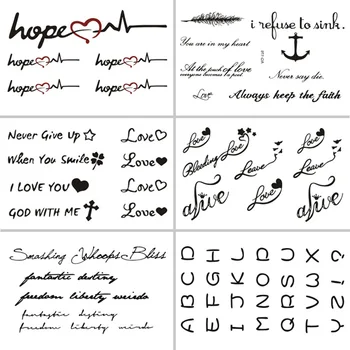 hope
hope hope
hope hope
i refuse to sink.
You are in my heart
At the puch of love
everyone becomes a poet
Never say die.
Love Always keep the faith
Never Give Up Love
When You Smile Love
I LOVE YOU Love
GOD WITH ME Love
Love
Love
Bleeding
Leave
Leave
Love
Love
alive
alive
Smashing Whoops Bliss
fantastic destiny
freedom liberty weirdo
fantastic destiny
freedom liberty weirdo
A B C D
E F G H
I J K L
M N O D
R Q S U
T V W X
Y Z ! ?